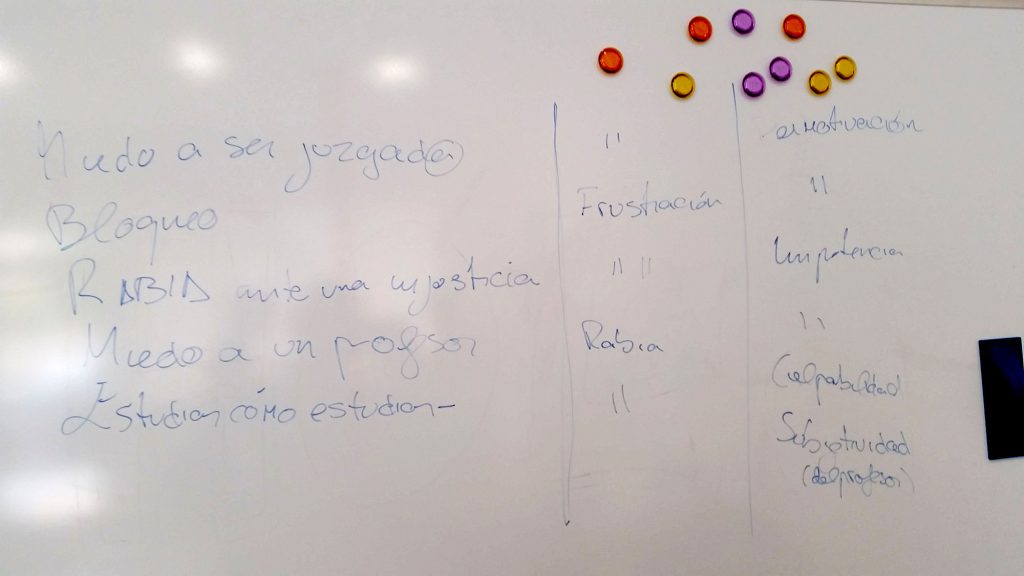 Miedo a ser juzgad@
Bloqueo
RABIA ante una injusticia
Miedo a un profesor
Estudiar cómo estudiar-
"
Frustración
" "
Rabia
"
"
Impotencia
"
Culpabilidad
Subjetividad
(del profesor)